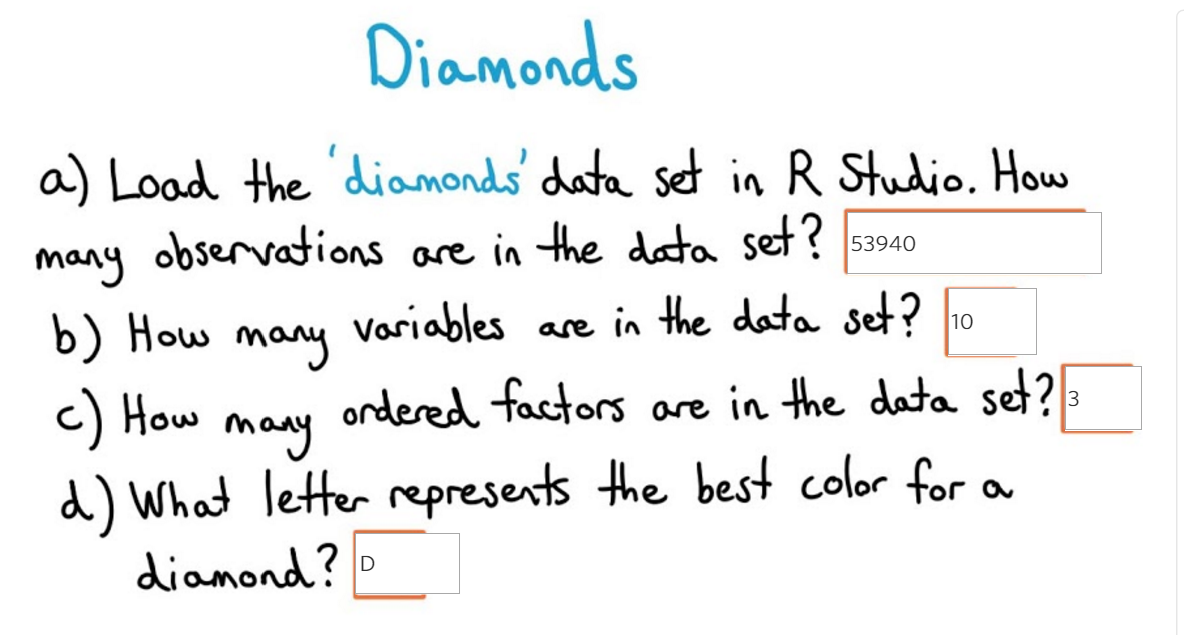 Diamonds
a) Load the 'diamonds' data set in R Studio. How
many observations are in the data set? 53940
b) How many variables are in the data set? 10
c) How many ordered factors are in the data set? 3
d) What letter represents the best color for a
diamond? D